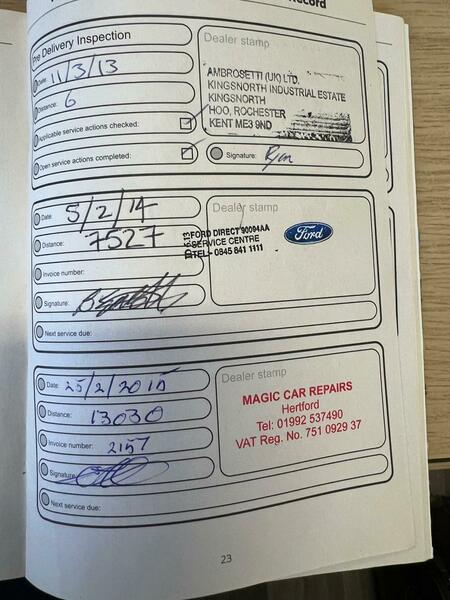 Record
Pre Delivery Inspection
Date: 11/3/13
Distance: 6
Applicable service actions checked:
Open service actions completed:
Dealer stamp
AMBROSETTI (UK) LTD.
KINGSNORTH INDUSTRIAL ESTATE
KINGSNORTH
HOO, ROCHESTER
KENT ME3 9ND
Signature:
Date: 5/2/14
Distance: 7527
Invoice number:
Signature:
Next service due:
Dealer stamp
FORD DIRECT 90094AA
SERVICE CENTRE
TEL- 0845 841 1111
Ford
Date: 25/2/2015
Distance: 13030
Invoice number: 2157
Signature
Next service due:
Dealer stamp
MAGIC CAR REPAIRS
Hertford
Tel: 01992 537490
VAT Reg. No. 751 0929 37
23